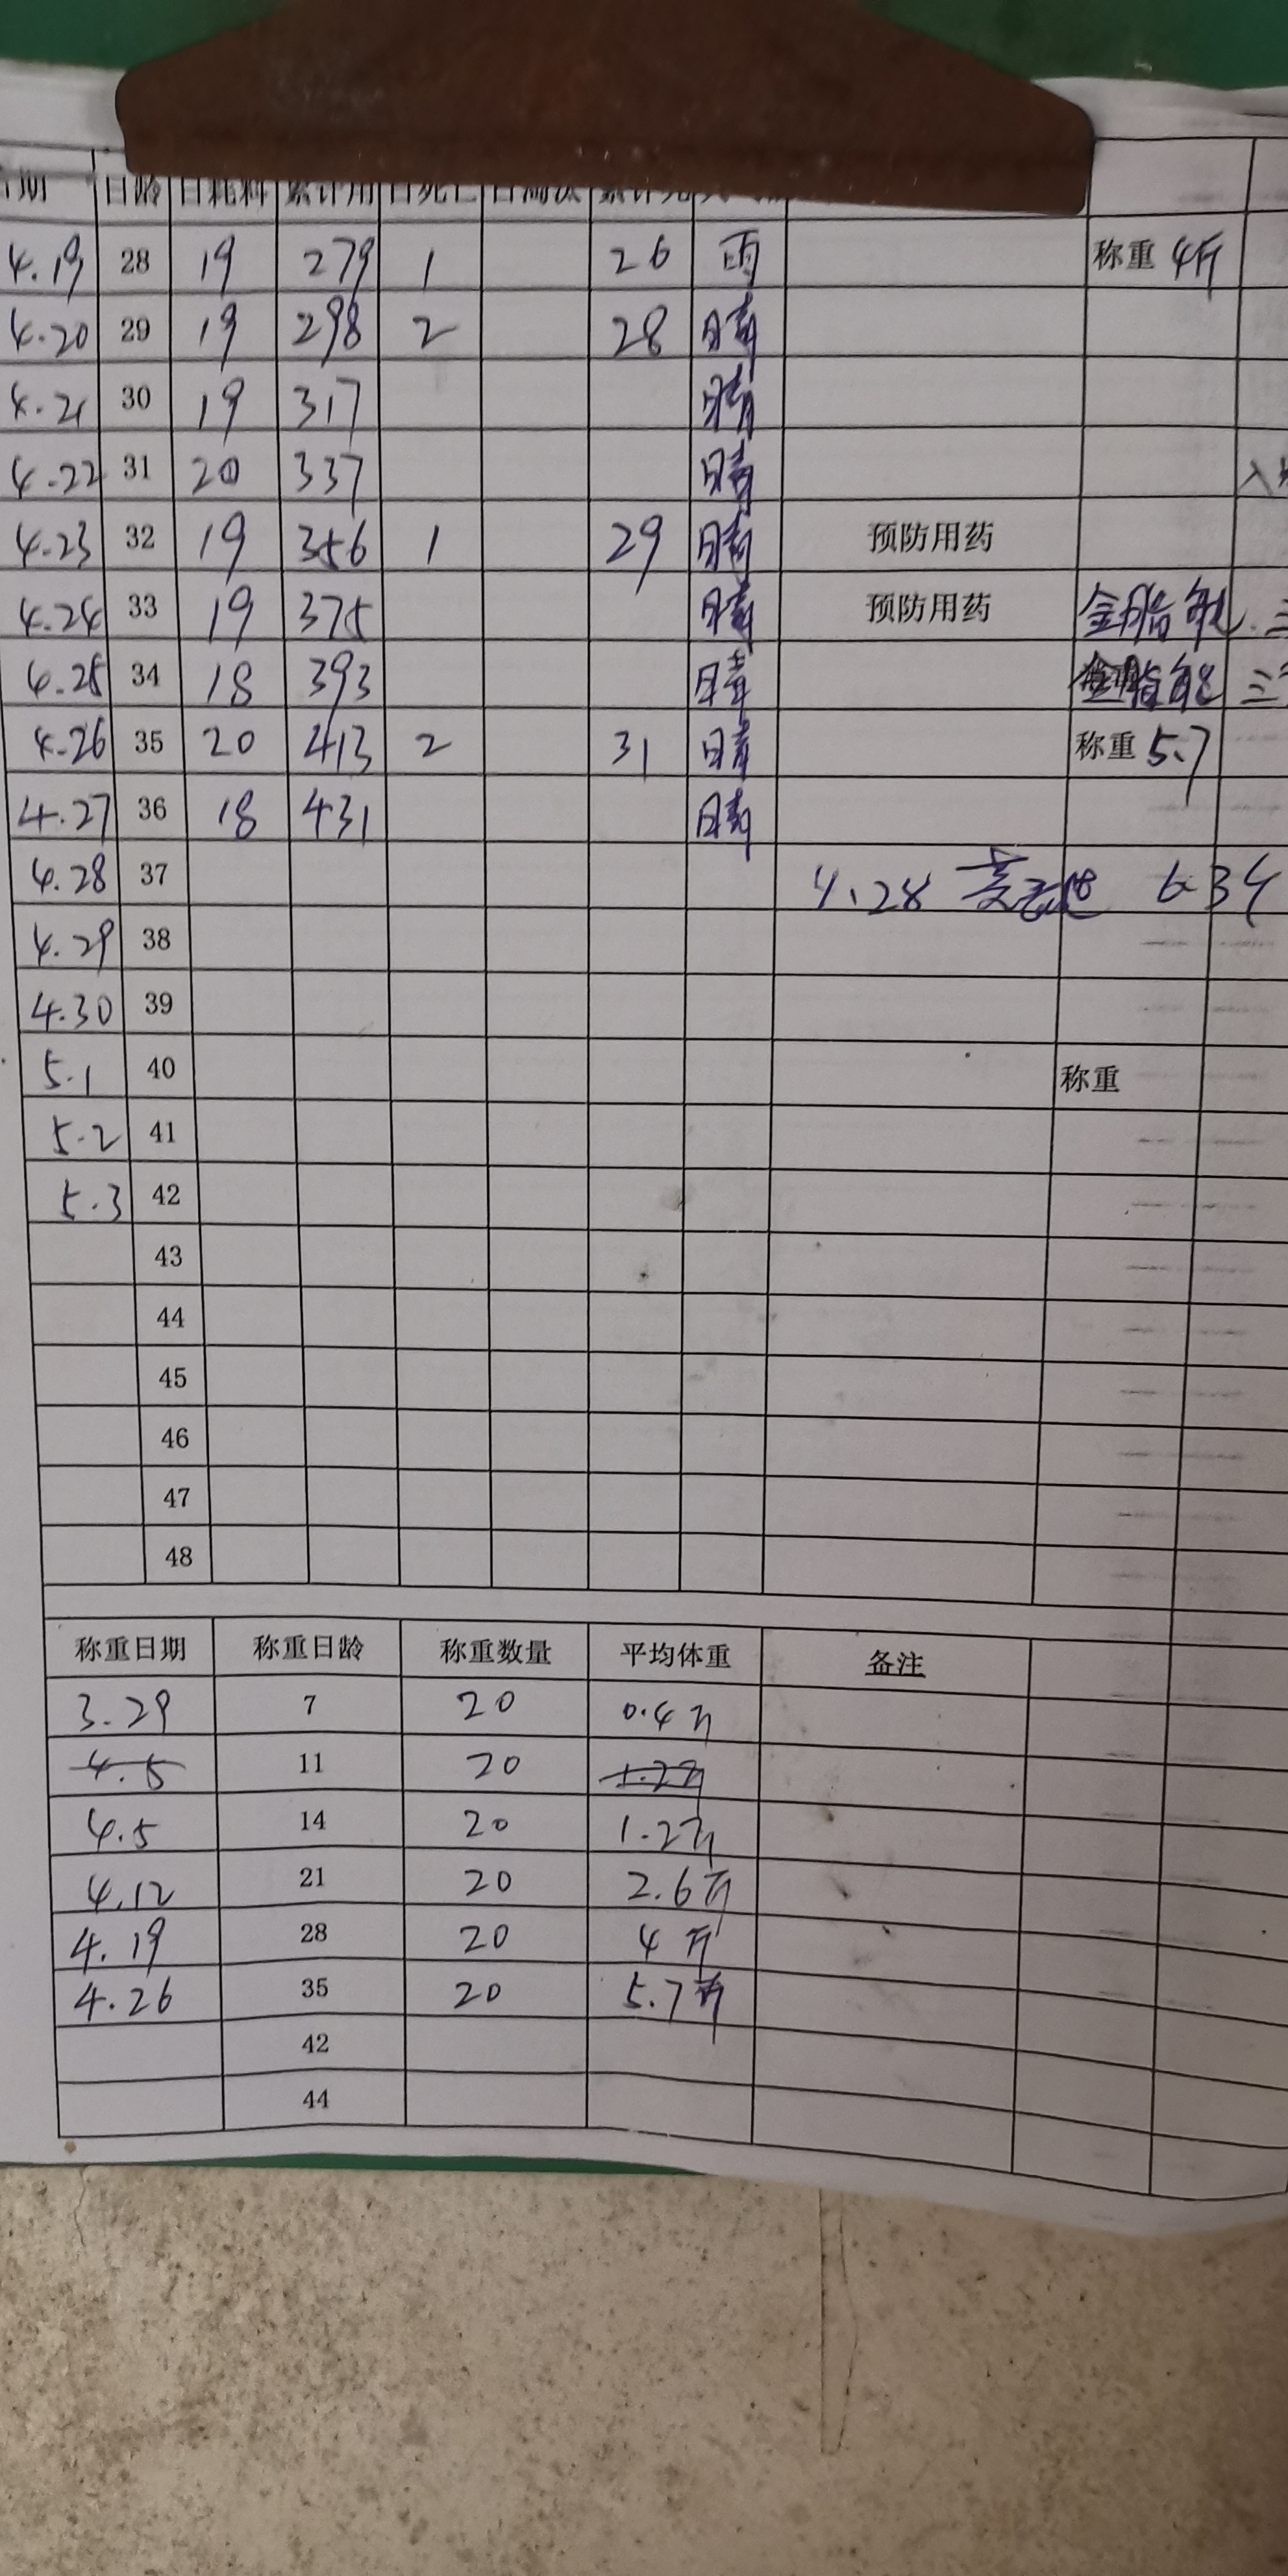 日龄 日耗料 累计用
4.19 28 19 279 1 26 雨 称重 4斤
4.20 29 19 298 2 28 晴
4.21 30 19 317 晴
4.22 31 20 337 晴
4.23 32 19 356 1 29 晴 预防用药
4.24 33 19 375 晴 预防用药 金脂
4.25 34 18 393 晴 金脂
4.26 35 20 413 2 31 晴 称重 5.7
4.27 36 18 431 晴
4.28 37 4.28 6.34
4.29 38
4.30 39
5.1 40 称重
5.2 41
5.3 42
43
44
45
46
47
48
称重日期 称重日龄 称重数量 平均体重 备注
3.29 7 20 0.4斤
4.5 11 20 1.2斤
4.5 14 20 1.2斤
4.12 21 20 2.6斤
4.19 28 20 4斤
4.26 35 20 5.7斤
42
44